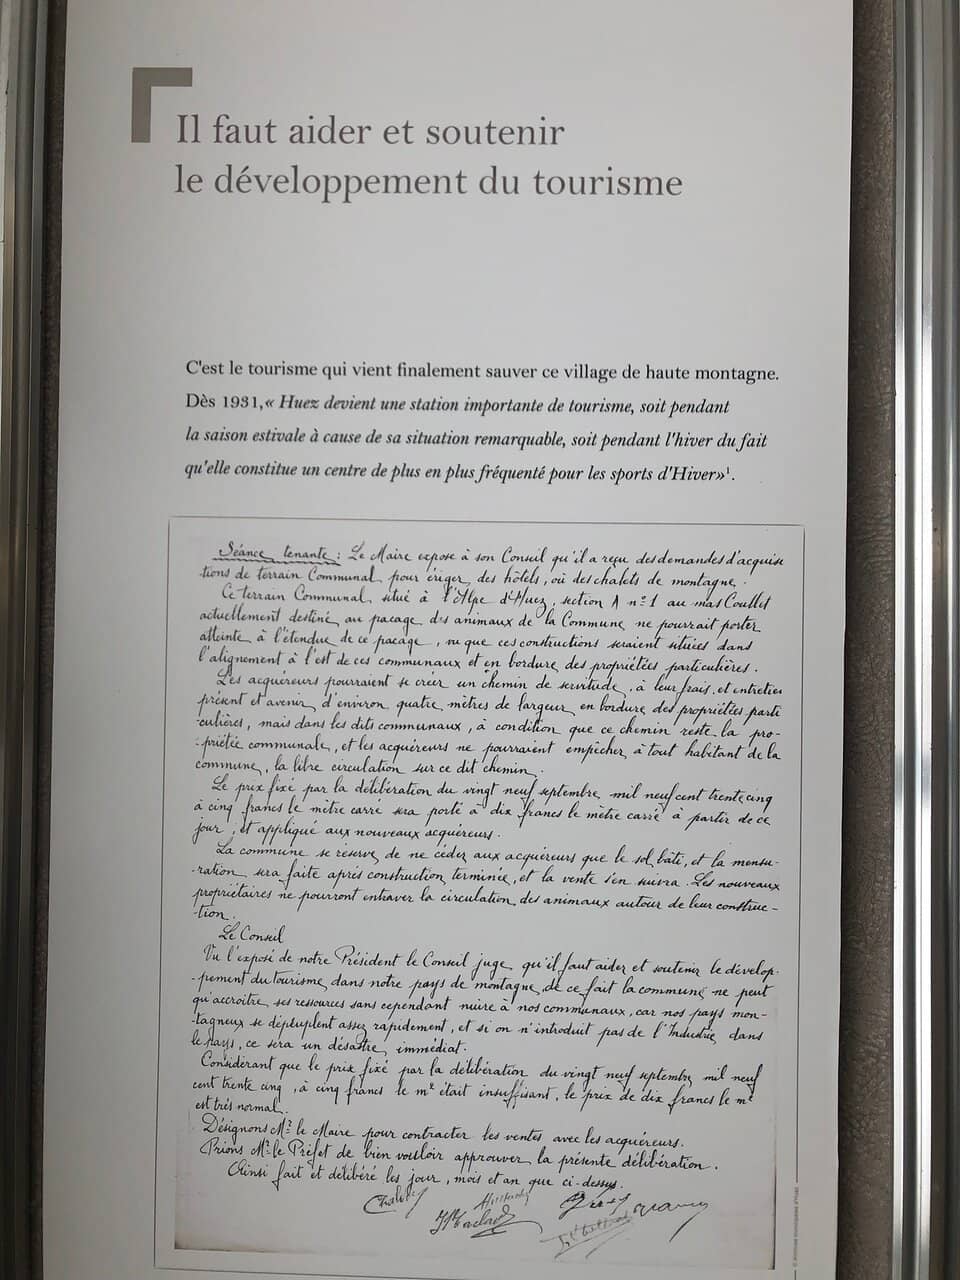 Il faut aider et soutenir
le développement du tourisme
C'est le tourisme qui vient finalement sauver ce village de haute montagne.
Dès 1931,« Huez devient une station importante de tourisme, soit pendant
la saison estivale à cause de sa situation remarquable, soit pendant l'hiver du fait
qu'elle constitue un centre de plus en plus fréquenté pour les sports d'Hiver»¹.
Séance tenante : Le Maire expose à son Conseil qu'il a reçu des demandes d'acquisi
tions de terrain Communal, pour ériger des hôtels, où des châlets de montagne.
Ce terrain Communal, situé à l'Alpe d'Huez, section A n°1 au mas Coullet
actuellement destiné au pacage des animaux de la Commune ne pourrait porter
atteinte à l'étendue de ce pacage, vu que ces constructions seraient situées dans
l'alignement à l'est de ces communaux et en bordure des propriétés particulières.
Les acquéreurs pourraient se créer un chemin de servitude, à leur frais, et entretien
présent et avenir d'environ quatre mètres de largeur en bordure des propriétées parti
-culières, mais dans les dits communaux, à condition que ce chemin reste la pro-
-priétée communale, et les acquéreurs ne pourraient empêcher à tout habitant de la
commune, la libre circulation sur ce dit chemin.
Le prix fixé par la délibération du vingt neuf septembre mil neuf cent trente cinq
à cinq francs le mètre carré sera porté à dix francs le mètre carré à partir de ce
jour, et appliqué aux nouveaux acquéreurs.
La commune se réserve de ne céder aux acquéreurs que le sol bâti, et la mensu-
-ration sera faite après construction terminée, et la vente s'en suivra. Les nouveaux
propriétaires ne pourront entraver la circulation des animaux autour de leur construc-
-tion.
Le Conseil
Vu l'exposé de notre Président le Conseil juge qu'il faut aider et soutenir le dévelop-
-pement du tourisme dans notre pays de montagne, de ce fait la commune ne peut
qu'accroître ses ressources sans cependant nuire à nos communaux, car nos pays mon-
-tagneux se dépleuplent assez rapidement, et si on n'introduit pas de l'Industrie dans
le pays, ce sera un désastre immédiat.
Considérant que le prix fixé par la délibération du vingt neuf septembre mil neuf
cent trente cinq, à cinq francs le m² était insuffisant, le prix de dix francs le m²
est très normal.
Désignons Mr le Maire pour contracter les ventes avec les acquéreurs.
Prions Mr le Préfet de bien vouloir approuver la présente délibération.
Ainsi fait et délibéré les jour, mois et an que ci-dessus.